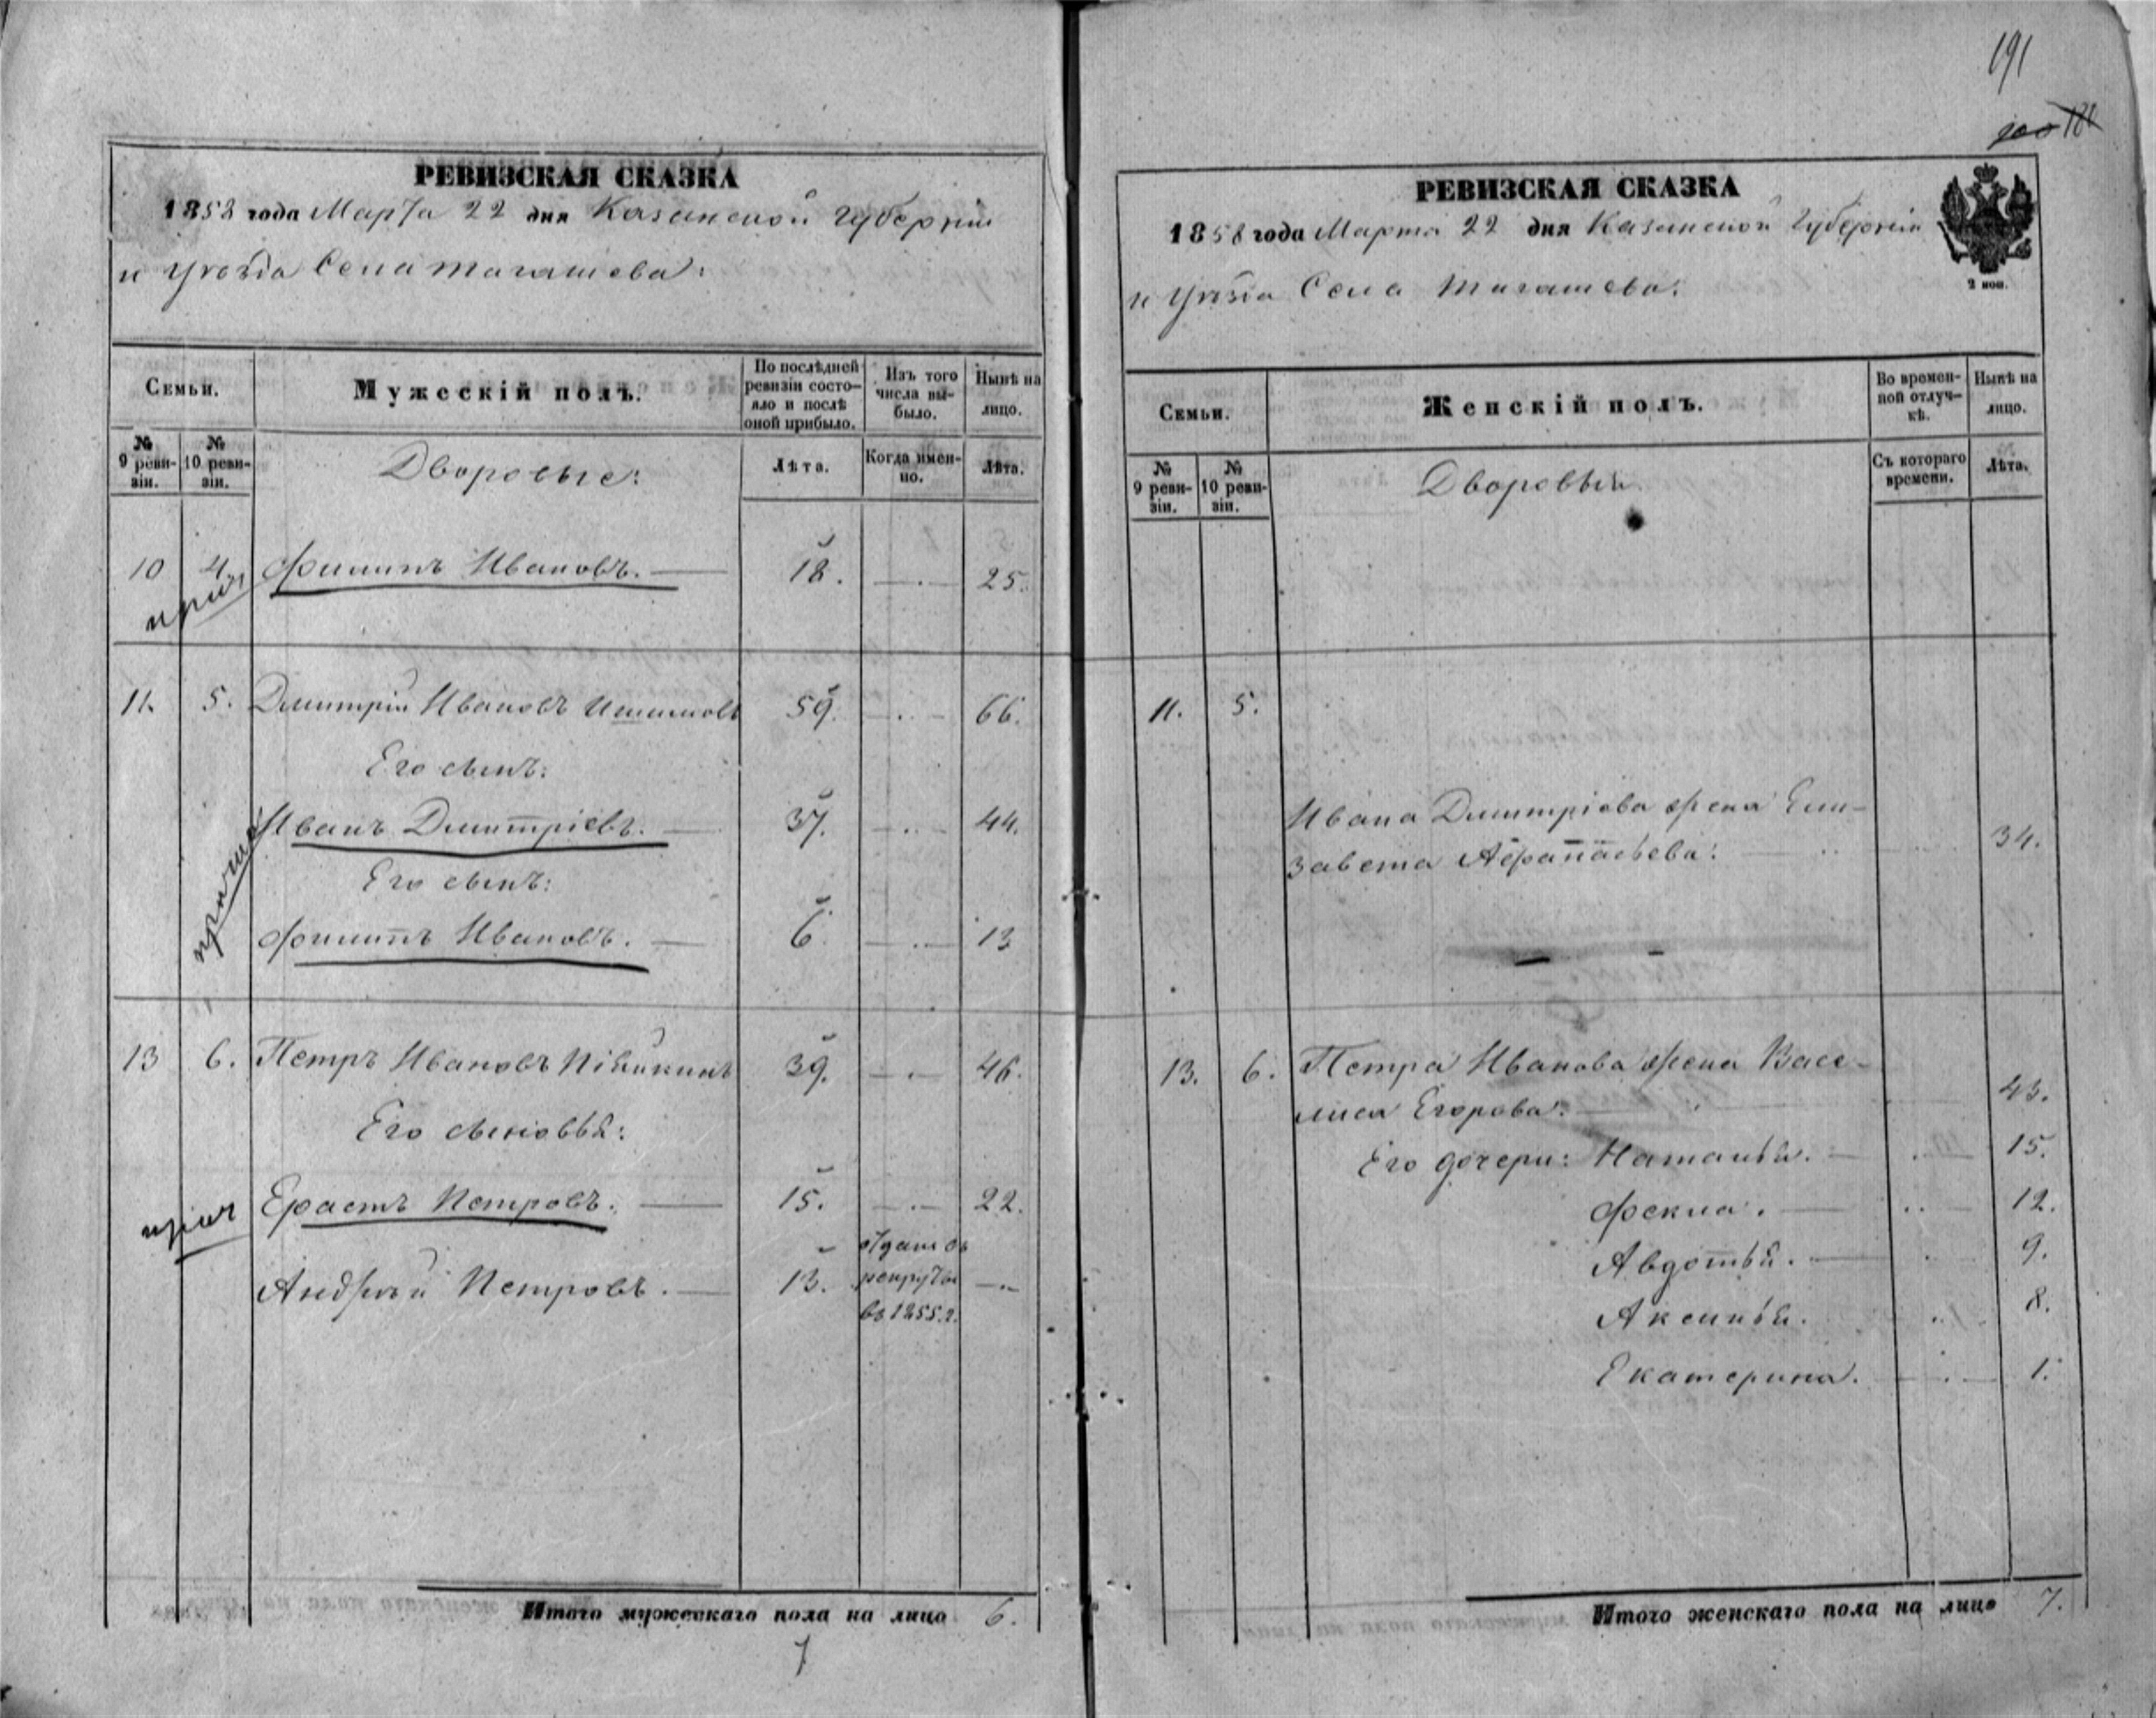 РЕВИЗСКАЯ СКАЗКА
1858 года Марта 22 дня Казанской Губерніи
и Уѣзда Села Тагашева:
Семьи.
Мужескій полъ.
По послѣдней ревизіи состояло и послѣ оной прибыло.
Изъ того числа выбыло.
Нынѣ на лицо.
№ 9 ревизіи.
№ 10 ревизіи.
Дворовые:
Лѣта.
Когда именно.
Лѣта.
10 4 Филипъ Ивановъ. — 18. —.— 25.
11. 5. Дмитрій Ивановъ 59. —.— 66.
Его сынъ:
Иванъ Дмитріевъ. — 37. —.— 44.
Его сынъ:
Филипъ Ивановъ. — 6. —.— 13
13 6. Петръ Ивановъ 39. —.— 46.
Его сыновья:
Ерастъ Петровъ. — 15. —.— 22.
Андрей Петровъ. — 13. отданъ въ рекруты въ 1855.г. —
Итого мужескаго пола на лицо 6.
7
191
188
РЕВИЗСКАЯ СКАЗКА
1858 года Марта 22 дня Казанской Губерніи
и Уѣзда Села Тагашева.
2 коп.
Семьи.
Женскій полъ.
Во временной отлучкѣ.
Нынѣ на лицо.
№ 9 ревизіи.
№ 10 ревизіи.
Дворовыя
Съ котораго времени.
Лѣта.
11. 5.
Ивана Дмитріева жена Ели-
завета Афанасьева. 34.
13. 6. Петра Иванова жена Васи-
лиса Егорова. 43.
Его дочери: Наталья. — 15.
Фекла. — 12.
Авдотья. — 9.
Аксинья. 8.
Екатерина. —.— 1.
Итого женскаго пола на лицо 7.